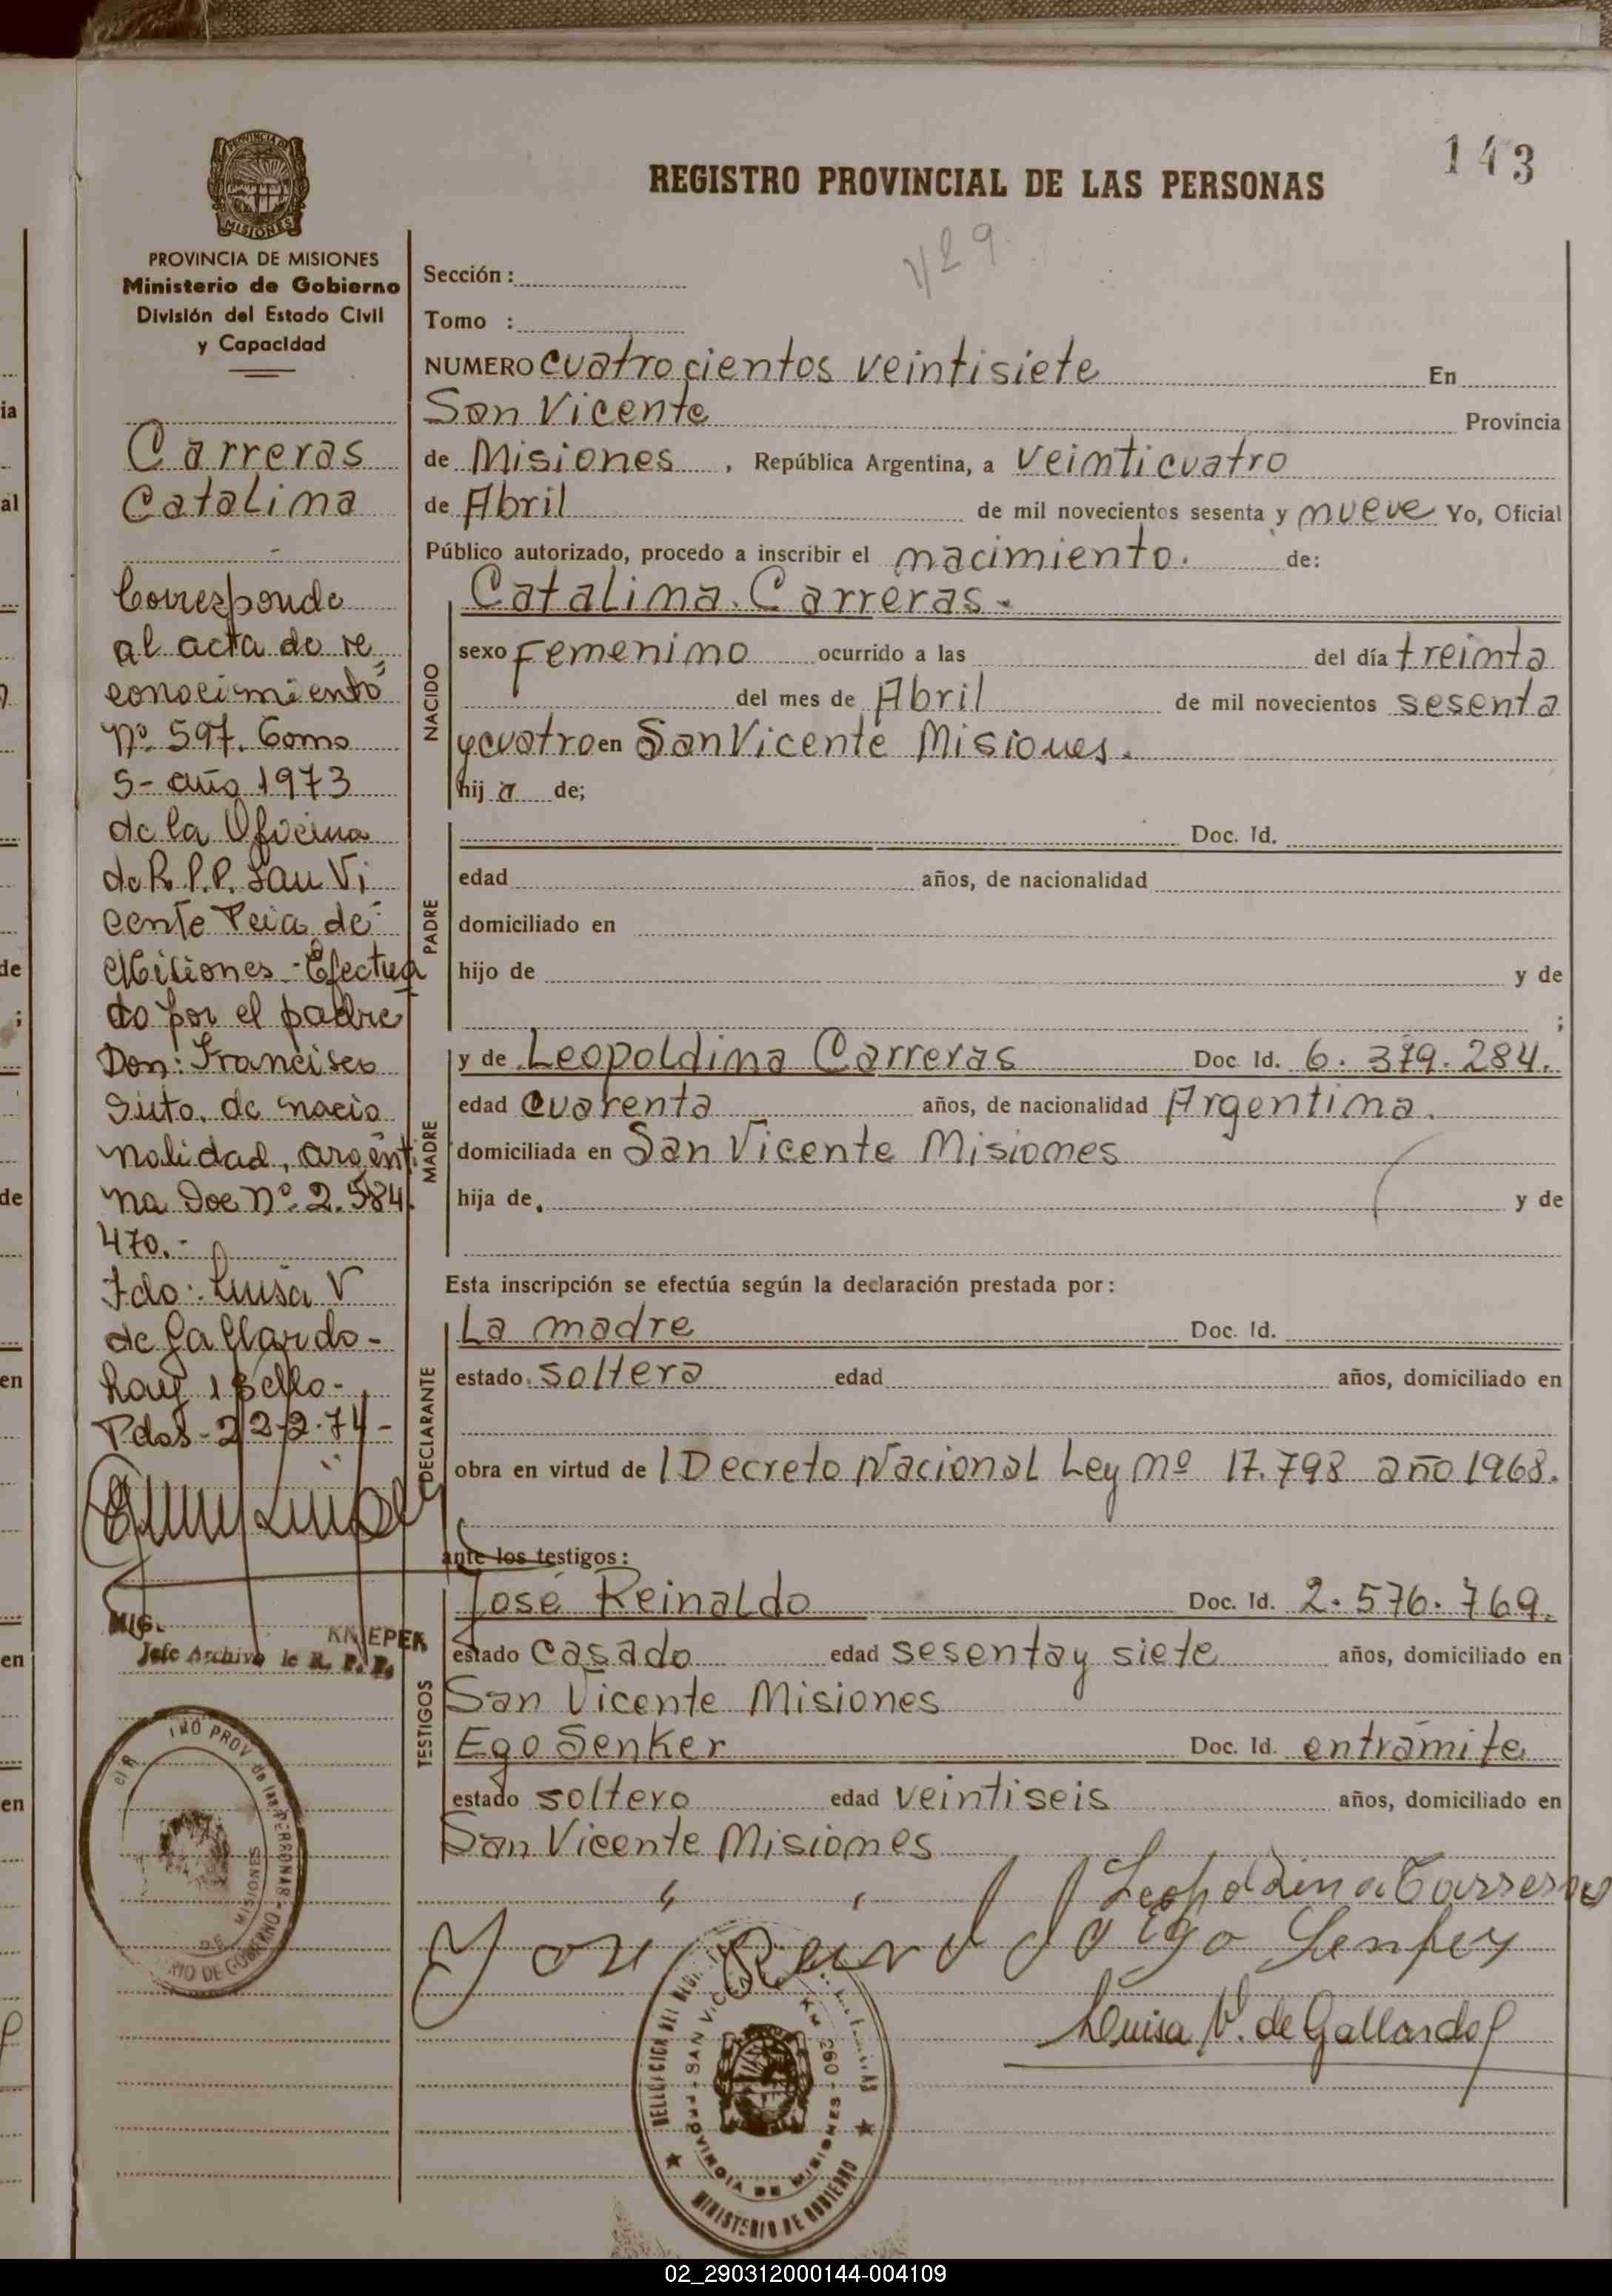 143
REGISTRO PROVINCIAL DE LAS PERSONAS
129
PROVINCIA DE MISIONES
Ministerio de Gobierno
División del Estado Civil
y Capacidad
Carreras
Catalina
Corresponde
al acta de re
conocimiento
Nº 597. Tomo
5- año 1973
de la Oficina
de R.P.P. San Vi
cente Pcia de
Misiones - Efectua
do por el padre
Don: Francisco
de nacio
nalidad, argenti
na Doc Nº 2.584.
470.-
Fdo: Luisa V
de Gallardo-
hay 1 sello-
Pdas-22-2-74-
MIG. KNIEPER
Jefe Archivo de R. P. P.
Sección :
Tomo :
NUMERO cuatrocientos veintisiete En
San Vicente Provincia
de Misiones , República Argentina, a veinticuatro
de Abril de mil novecientos sesenta y nueve Yo, Oficial
Público autorizado, procedo a inscribir el nacimiento. de:
NACIDO
Catalina Carreras.
sexo Femenino ocurrido a las del día treinta
del mes de Abril de mil novecientos sesenta
y cuatro en San Vicente Misiones.
hij a de;
PADRE
Doc. Id.
edad años, de nacionalidad
domiciliado en
hijo de y de
;
MADRE
y de Leopoldina Carreras Doc. Id. 6.379.284.
edad cuarenta años, de nacionalidad Argentina.
domiciliada en San Vicente Misiones
hija de y de
Esta inscripción se efectúa según la declaración prestada por:
DECLARANTE
La madre Doc. Id.
estado soltera edad años, domiciliado en
obra en virtud de l Decreto Nacional Ley nº 17.798 año 1968.
ante los testigos:
TESTIGOS
José Reinaldo Doc. Id. 2.576.769.
estado casado edad sesenta y siete años, domiciliado en
San Vicente Misiones
Ego Senker Doc. Id. entramite
estado soltero edad veintiseis años, domiciliado en
San Vicente Misiones
Leopoldina Carreras
Ego Senker
Luisa V. de Gallardo
PROVINCIA DE MISIONES
MINISTERIO DE GOBIERNO
02_290312000144-004109